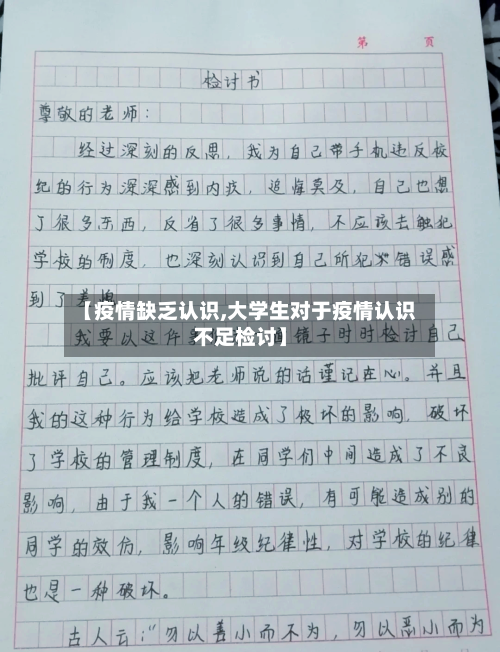 第 頁
检讨书
尊敬的老师：
经过深刻的反思，我为自己带手机违反校
纪的行为深深感到内疚，追悔莫及，自己也想
了很多东西，反省了很多事情，不应该去触犯
学校的制度，也深刻认识到自己所犯错误感
到了羞愧
【疫情缺乏认识,大学生对于疫情认识
不足检讨】
我要以这件 镜子时时检讨自己
批评自己。应该把老师说的话谨记在心。并且
我的这种行为给学校造成了破坏的影响，破坏
了学校的管理制度，在同学们中间造成了不良
影响，由于我一个人的错误，有可能造成别的
同学的效仿，影响年级纪律性，对学校的纪律
也是一种破坏。
古人云："勿以善小而不为，勿以恶小而为